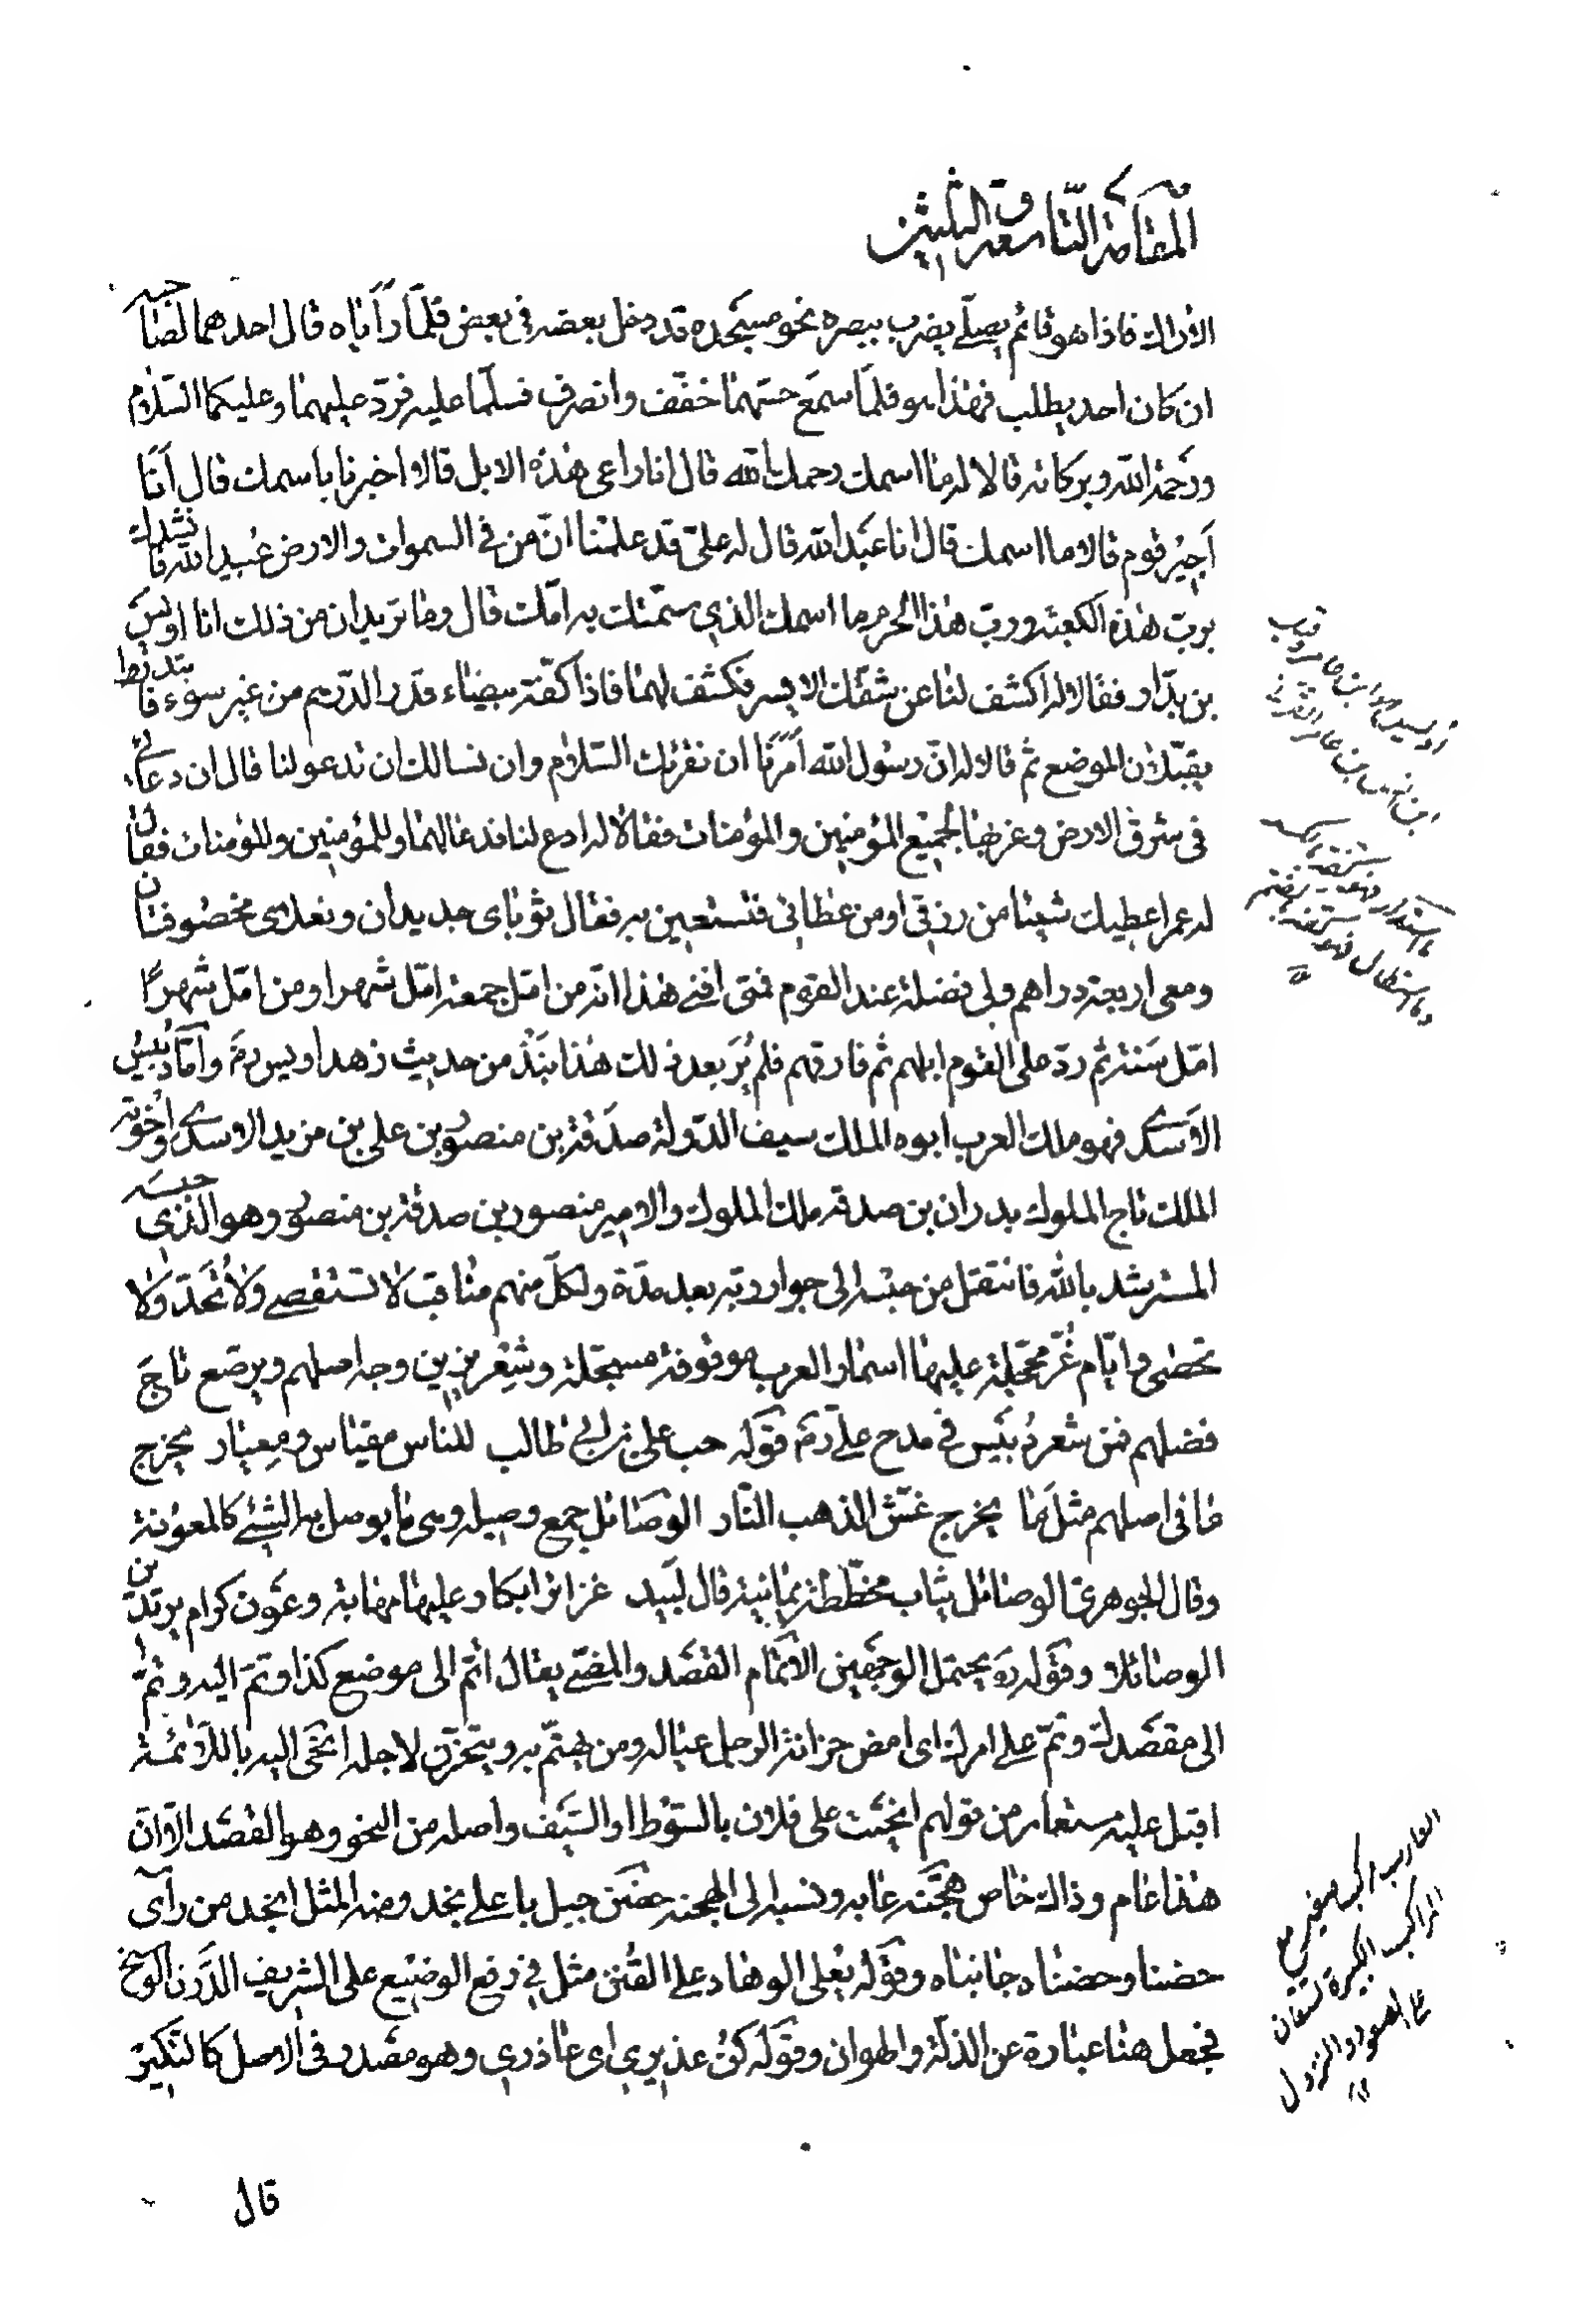 المقامة التاسعة والثلثين
الاراك فاذا هو قائم يصلّى يضرب ببصره نحو مسجده قد دخل بعضه فى بعض فلمّا رأياه قال احدهما لصاحبه
ان كان احد يطلب فهذا هو فلمّا سمع حسّهما خفّف وانصرف فسلّما عليه فردّ عليهما وعليكما السّلام
ورحمة اللّه وبركاته قالا له ما اسمك رحمك اللّه قال انا راعى هذه الابل قالا اخبرنا باسمك قال انا
اجير قوم قالا ما اسمك قال انا عبد اللّه قال له علىّ قد علمنا انّ من فى السموات والارض عبيد اللّه فانشدك
بربّ هذه الكعبة وربّ هذا الحرم ما اسمك الذى سمّتك به امّك قال وما تريدان من ذلك انا اويس
بن بدّاو فقالا له اكشف لنا عن شقّك الايسر فكشف لهما فاذا كفّة بيضاء قدر الدّرهم من غير سوء فابتدرا
يقبّلان الموضع ثم قالا له انّ رسول اللّه امرنا ان نقرئك السّلام وان نسالك ان تدعو لنا قال ان دعائى
فى شرق الارض وغربها لجميع المؤمنين والمؤمنات فقالا له ادع لنا فدعا لهما وللمؤمنين وللمؤمنات فقال
له عمر اعطيك شيئا من رزقى او من عطائى فتستعين به فقال ثوباى جديدان ونعلاى مخصوفتان
ومعى اربعة دراهم ولى فضلة عند القوم فمتى افنى هذا انّه من امّل جمعة امّل شهرا ومن امّل شهرا
امّل سنة ثم ردّ على القوم ابلهم ثم فارقهم فلم يُرَ بعد ذلك هذا نبذ من حديث زهد اويس رهَ وامّا دُبَيس
الاسدى فهو ملك العرب ابوه الملك سيف الدّولة صدقة بن منصور بن على بن مزيد الاسدى واخوته
الملك تاج الملوك بدران بن صدقة ملك الملوك والامير منصور بن صدقة بن منصور وهو الذى حبسه
المسترشد باللّه فانتقل من حبسه الى جوار ربّه بعد مدّة ولكلّ منهم مناقب لا تستقصى ولا تحدّ ولا
تحصى وايّام غُرّ محجّلة عليها اسمار العرب موقوفة مسجّلة وشعر يزين وجه اصلهم ويرصّع تاج
فضلهم فمن شعر دبيس فى مدح علىّ رمَ قوله حب على بن ابى طالب للناس مقياس ومعيار يخرج
ما فى اصلهم مثل ما يخرج غشّ الذهب النّار الوصائل جمع وصيلة وهى ما يوصل به الشىء كالمعونة
وقال الجوهرىّ الوصائل ثياب مخطّطة يمانية قال لبيد غزائر ابكار عليها مهابة وعون كرام يرتدين
الوصائلا وقوله رهَ يحتمل الوجهين الاتمام القصد والمضىّ يقال اتم الى موضع كذا وتمّ اليه وتمّ
الى مقصدك وتمّ على امرك اى امض حزانة الرجل عياله ومن يهتمّ به ويتحزّن لاجله انحى اليه باللائمة
اقبل عليه مستعار من قولهم انحيت على فلان بالسّوط او السّيف واصله من النحو وهو القصد الّا انّ
هذا عام وذاك خاص هجّنه عابه ونسبه الى الهجنة حضن جبل باعلى نجد ومنه المثل انجد من رآى
حضنا وحضناه جانباه وقوله يُعلى الوهاد على القُنَن مثل فى رفع الوضيع على الشريف الدَّرَن الوسخ
فجعل هنا عبارة عن الذلّة والهوان وقوله كن عذيرى اى عاذرى وهو مصدر فى الاصل كالنكير
القارب مركب صغير مع
المراكب الكبيرة تستعان
على الصعود والنزول
قال